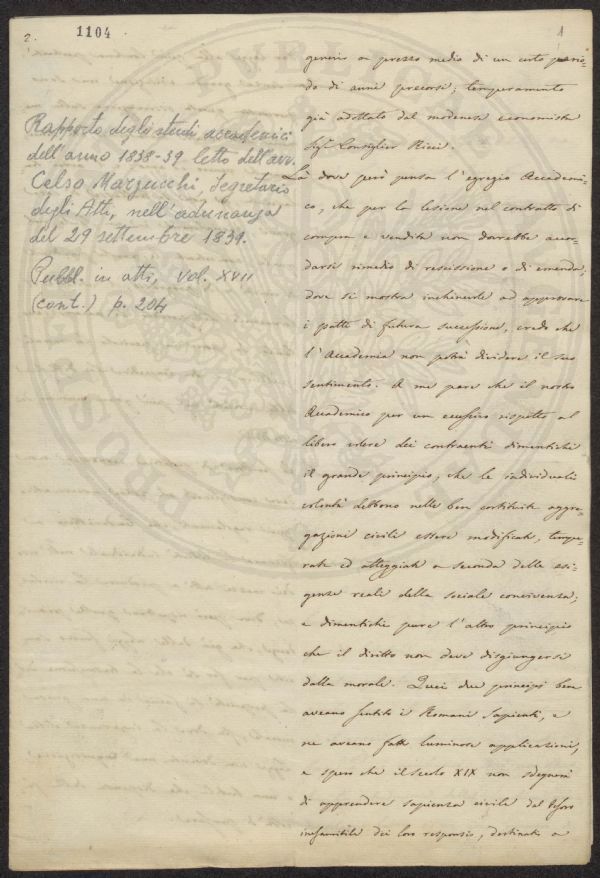 2.
1104
1
Rapporto degli studi accademici
dell'anno 1838-39 letto dell'avv.
Celso Marzucchi, Segretario
degli Atti, nell'adunanza
del 29 settembre 1839.
Pubbl. in atti, vol. XVII
(cont.) p. 204
generis a prezzo medio di un certo perio-
do di anni percorsi; temperamento
già adottato dal modenese economista
Sigr. Consiglier Ricci.
Là dove però pensa l'egregio Accademi-
co, che per la lesione nel contratto di
compra e vendita non dovrebbe accor-
darsi rimedio di rescissione o di emenda,
dove si mostra inchinevole ad approvare
i patti di futura successione, credo che
l'Accademia non potrà dividere il suo
sentimento. A me pare che il nostro
Accademico per un eccessivo rispetto al
libero volere dei contraenti dimentichi
il grande principio, che le individuali
volontà debbono nelle ben costituite aggre-
gazioni civili essere modificate, tempe-
rate ed atteggiate a seconda delle esi-
genze reali della sociale convivenza;
e dimentichi pure l'altro principio
che il diritto non deve disgiungersi
dalla morale. Quei due principj bene
aveano sentito i Romani Sapienti, e
ne aveano fatte luminose applicazioni,
e spero che il secolo XIX non sdegnerà
di apprendere sapienza civile dal tesoro
inesauribile dei loro responsi, destinati a
PUBLICAE
PROSPERITATI